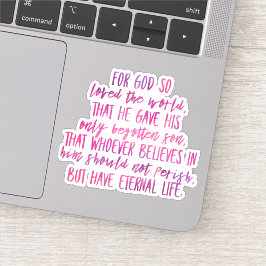 command
option
FOR GOD SO
loved the world,
THAT HE GAVE HIS
only begotten son,
THAT WHOEVER BELIEVES IN
him should not perish,
BUT HAVE ETERNAL LIFE.